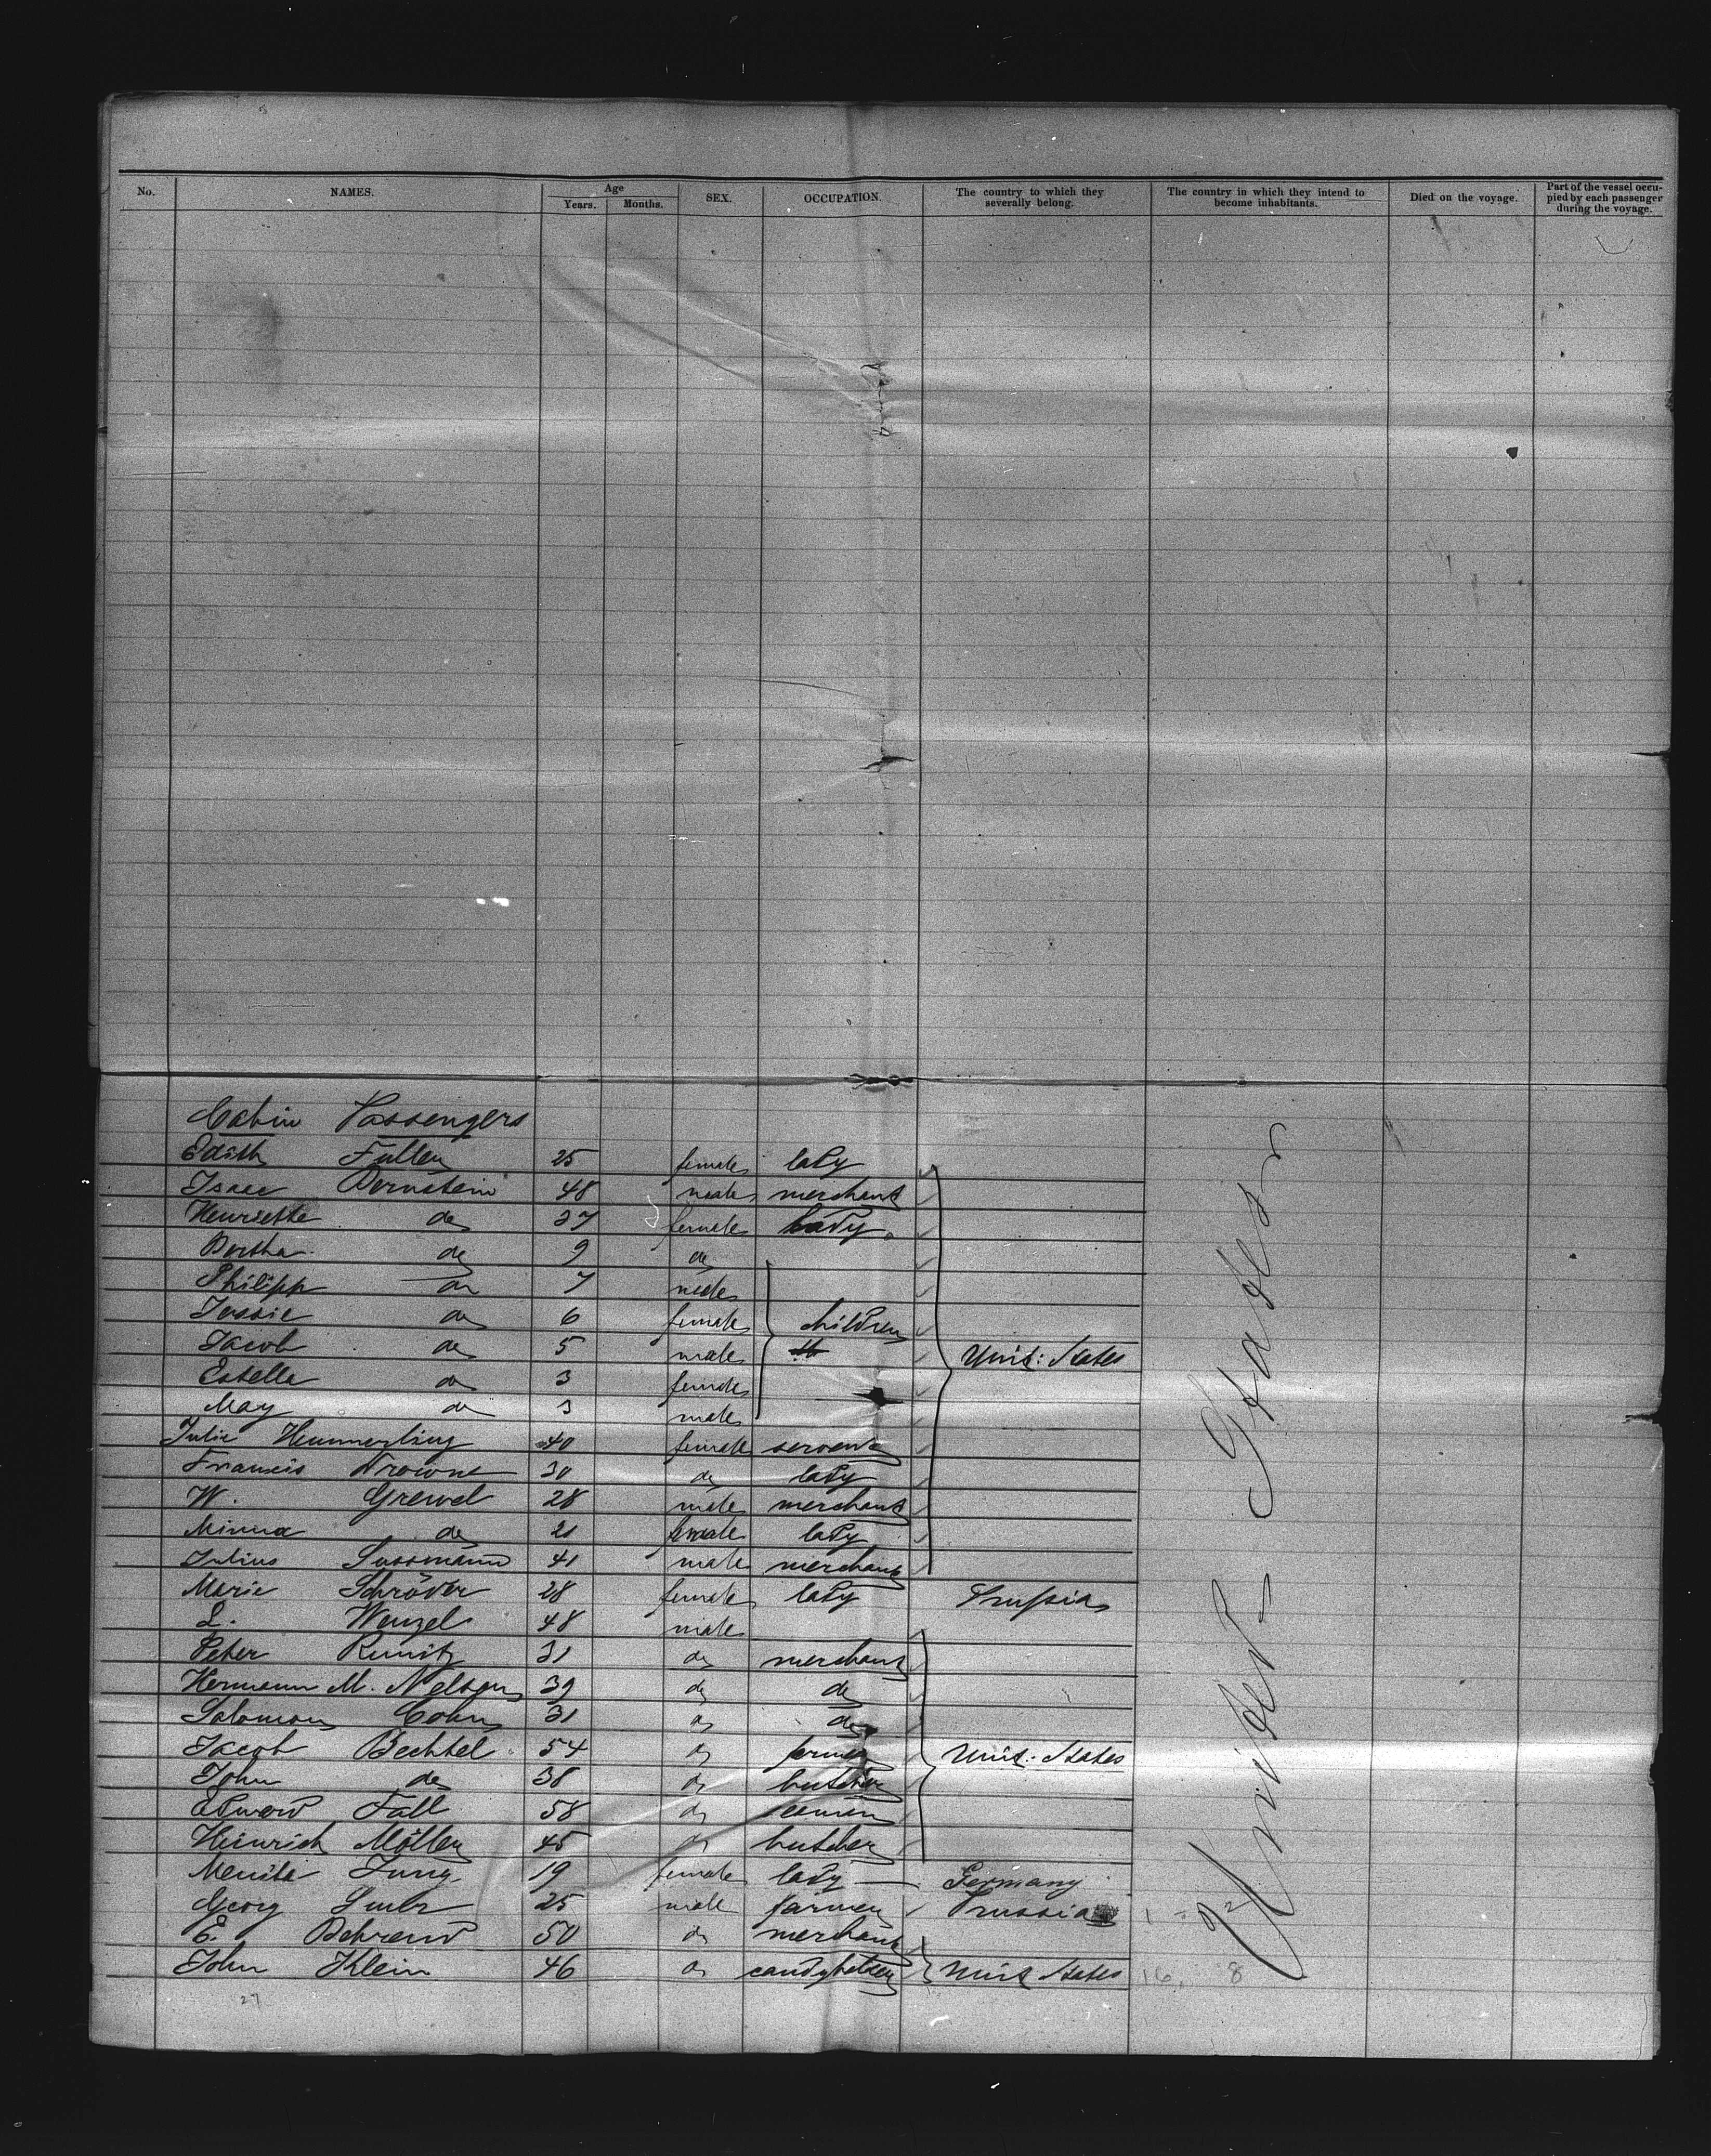 No. NAMES. Age Years. Months. SEX. OCCUPATION. The country to which they severally belong. The country in which they intend to become inhabitants. Died on the voyage. Part of the vessel occupied by each passenger during the voyage.
Cabin Passengers
Edith Fuller 25 female lady
Isaac Bernstein 48 male merchant
Henriette do 37 female lady
Bertha do 9 do
Philipp do 7 male
Jessie do 6 female children
Jacob do 5 male Unit: States
Estella do 3 female
May do 3 male
Julie Hemmerling 40 female servent
Francis Browne 30 do lady
W. Grewel 28 male merchant
Minna do 21 female lady
Julius Sussmann 41 male merchant
Marie Schröder 28 female lady Prussia
L. Wenzel 48 male
Peter 31 do merchant
Hermann M. Nelson 39 do do
Salomon Cohn 31 do do
Jacob Bechtel 54 do farmer Unit: States
John do 38 do butcher
Edward Fall 58 do
Heinrich Möller 45 do butcher
Jung 19 female lady — Germany
Georg 25 male farmer Prussia 1
E. Behrend 50 do merchant
John Klein 46 do Unit States 16. 8
27
United States